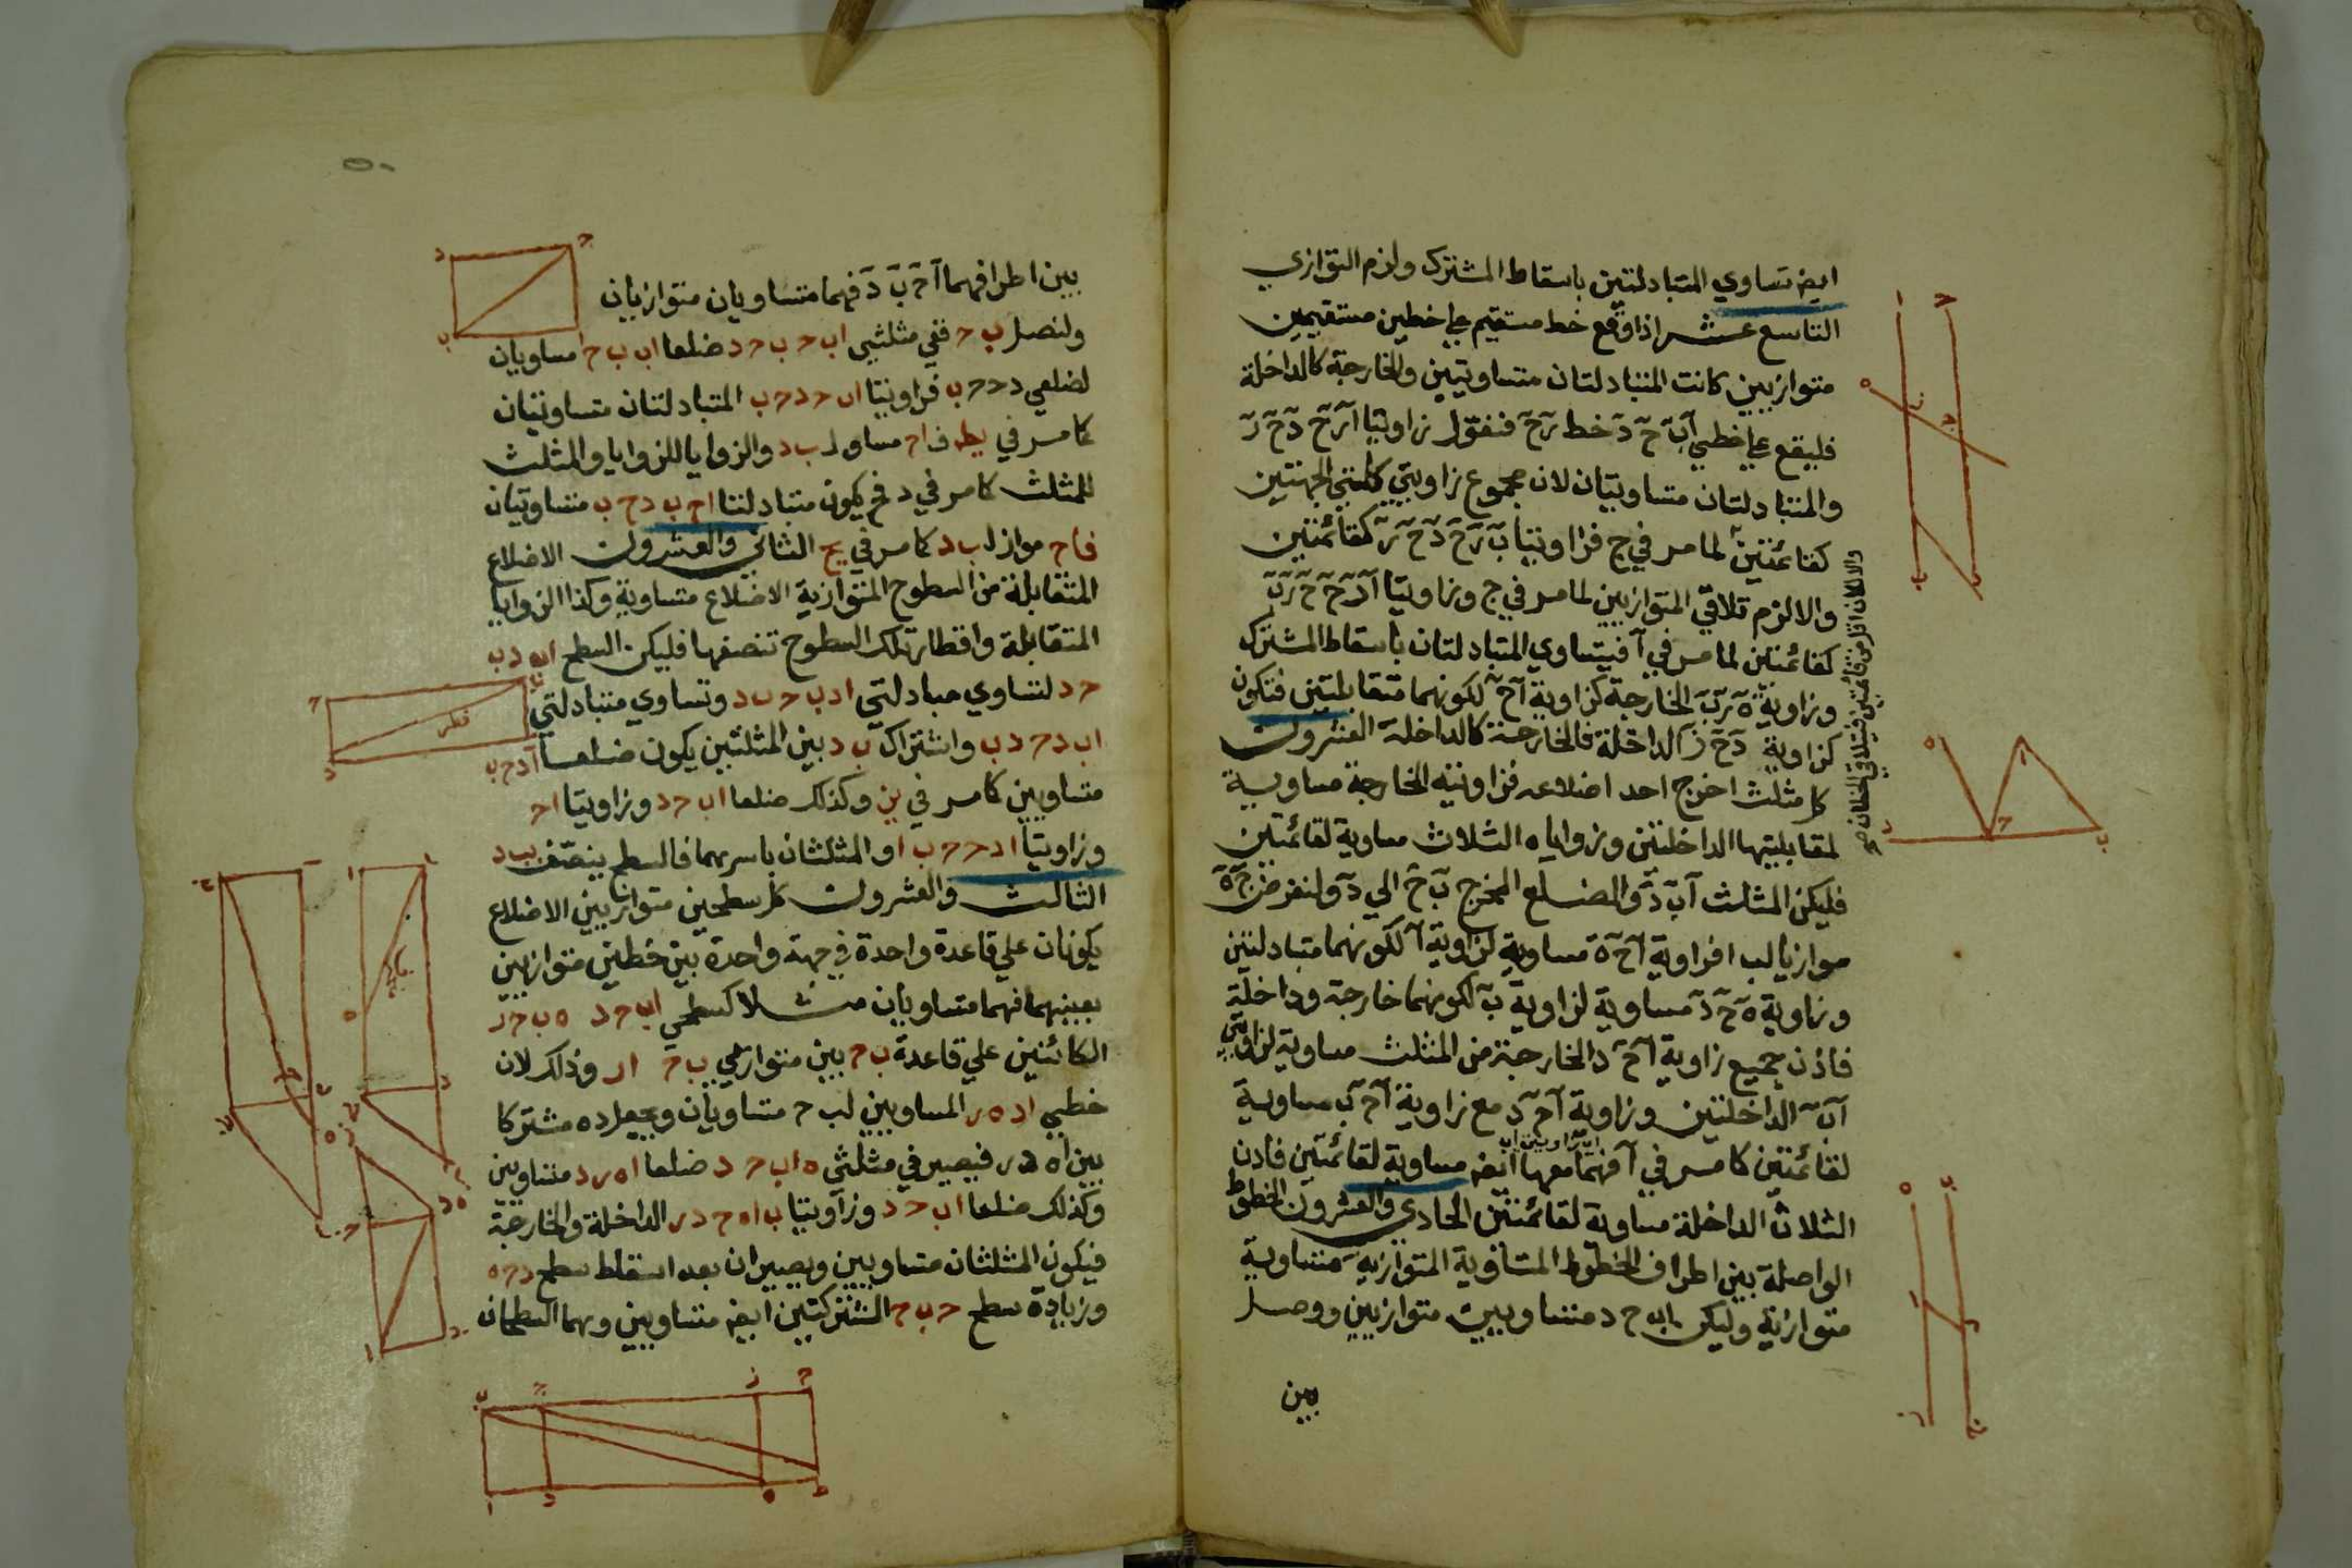 ايض تساوي المتبادلتين باسقاط المشترك ولزم التوازي
التاسع عشر اذا وقع خط مستقيم علي خطين مستقيمين
متوازيين كانت المتبادلتان متساويتين والخارجة كالداخلة
فليقع علي خطي اب ح د خط رح فنقول زاويتا ا رح د ح ر
والمتبادلتان متساويتان لان مجموع زاويتي كلتي الجهتين
كقائمتين لما مر في ج فزاويتا ب رح د ح ر كقائمتين
والا لزم تلاقي المتوازيين لما مر في ج وزاويتا
كقائمتين لما مر في ا فيتساوي المتبادلتان باسقاط المشترك
وزاوية ه ر ب الخارجة كزاوية ا ح لكونهما متقابلتين فتكون
كزاوية د ح ز الداخلة فالخارجة كالداخلة العشرون
كل مثلث اخرج احد اضلاعه فزاويته الخارجة مساوية
لمقابليتها الداخلتين وزواياه الثلاث مساوية لقائمتين
فليكن المثلث اب د والضلع المخرج ب ح الي د ولنفرض ج ه
موازيا لب ا فزاوية ا ح ه مساوية لزاوية ا لكونهما متبادلتين
وزاوية ه ح د مساوية لزاوية ب لكونهما خارجة وداخلة
فاذن جميع زاوية ا ح د الخارجة من المثلث مساوية لزاويتي
ا ب الداخلتين وزاوية ا ح د مع زاوية ا ح ب مساوية
لقائمتين كما مر في ا فهما معها ايض مساوية لقائمتين فاذن
الثلاث الداخلة مساوية لقائمتين الحادي والعشرون الخطوط
الواصلة بين اطراف الخطوط المتساوية المتوازية متساوية
متوازية وليكن اب ح د متساويين متوازيين ووصل
بين
والا لكان اقل من قائمتين فيتلاقي الخطان صح
٥٠
بين اطرافهما ا ح ب د فهما متساويان متوازيان
ولنصل ب ح ففي مثلثي اب ح ب ح د ضلعا اب ب ح مساويان
لضلعي د ح ح ب فزاويتا اب ح د ح ب المتبادلتان متساويتان
كما مر في يط ف ا ح مساو ل ب د والزوايا للزوايا والمثلث
للمثلث كما مر في د فح يكون متبادلتا ا ح ب د ح ب متساويتان
فا ح مواز ل ب د كما مر في يح الثاني والعشرون الاضلاع
المتقابلة من السطوح المتوازية الاضلاع متساوية وكذا الزوايا
المتقابلة واقطار تلك السطوح تنصفها فليكن السطح اب د ب
ح د لتساوي متبادلتي ا د ب ح ب د وتساوي متبادلتي
اب د ح د ب واشتراك ب د بين المثلثين يكون ضلعا ا د ح ب
متساويين كما مر في ين وكذلك ضلعا اب ح د وزاويتا ا ح
وزاويتا ا د ح ح ب ا والمثلثان باسرهما فالسطح ينصف ب د
الثالث والعشرون كل سطحين متوازيين الاضلاع
يكونان علي قاعدة واحدة في جهة واحدة بين خطين متوازيين
بعينهما فهما متساويان مثلا كسطحي اب ح د ه ب ح ر
الكائنين علي قاعدة ب ح بين متوازيي ب ح ا ر وذلك لان
خطي ا د ه ر المساويين لب ح متساويان ويجعل د ه مشتركا
بين ا ه د ر فيصير في مثلثي ه اب ح د ضلعا ا ه ر د متساويين
وكذلك ضلعا اب ح د وزاويتا ب ا ه ح د ر الداخلة والخارجة
فيكون المثلثان متساويين ويصيران بعد اسقاط سطح د ح ه
وزيادة سطح ح ب ح المشتركتين ايض متساويين وهما السطحان
قطر